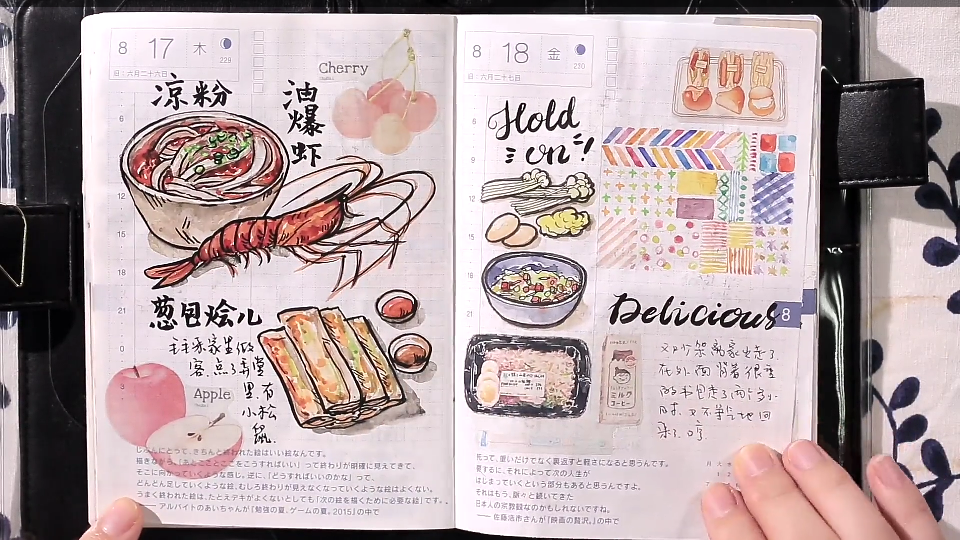 8 17 木
229
旧:六月二十六日
凉粉
油爆虾
Cherry
6
9
12
15
18
21
0
3
葱包烩儿
客,点了
里有
小松
鼠.
Apple
じぶんにとって、きちんと終われた絵はいい絵なんです。
描きながら、「あとこことここをこうすればいい」って終わりが明確に見えてきて、
そこに向かっていくような感じ。逆に、「どうすればいいのかな」って
どんどん足していくような絵、むしろ終わりが見えなくなっていくような絵はよくない。
うまく終われた絵は、たとえデキがよくないとしても「次の絵を描くために必要な絵」です。
── アルバイトのあいちゃんが『勉強の夏、ゲームの夏。2015』の中で
8 18 金
230
旧:六月二十七日
6
9
12
15
18
21
Hold
on!
Delicious
8
ミルク
コーヒー
在外面背着很重
的书包走了两个多小
时,又不争气地回
来了.哼.
死って、重いだけでなく裏返すと軽さになると思うんです。
要するに、それによって次の人生が
はじまっていくという部分もあると思うんですよ。
それはもう、脈々と続いてきた
日本人の宗教観なのかもしれないですね。
── 佐藤店市さんが『映画の贅沢。』の中で